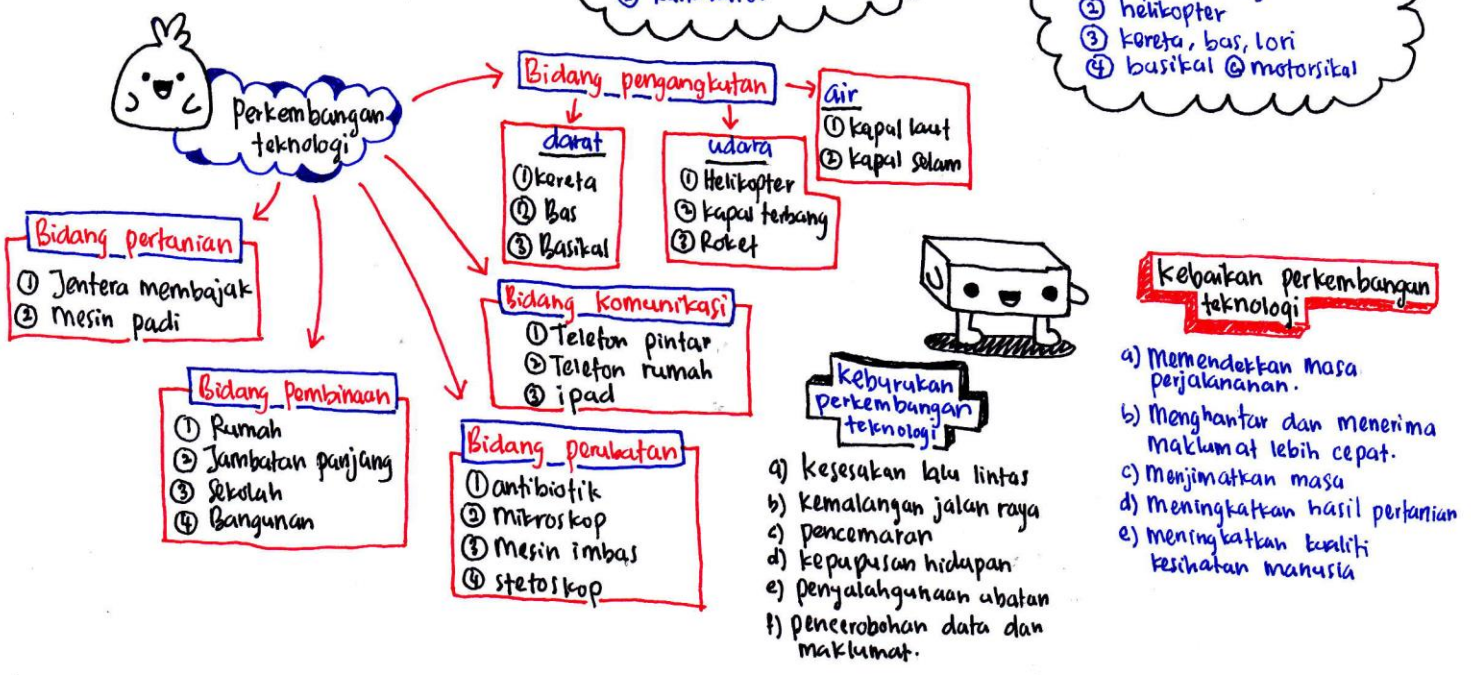 ② helikopter
③ kereta, bas, lori
④ basikal @ motorsikal
Perkembangan
teknologi
Bidang pengangkutan
darat
① kereta
② Bas
③ Basikal
udara
① Helikopter
② kapal terbang
③ Roket
air
① kapal laut
② kapal selam
Bidang pertanian
① Jentera membajak
② mesin padi
Bidang komunikasi
① Telefon pintar
② Telefon rumah
③ ipad
Bidang Pembinaan
① Rumah
② Jambatan panjang
③ Sekolah
④ Bangunan
Bidang perubatan
① antibiotik
② mikroskop
③ Mesin imbas
④ stetoskop
keburukan
perkembangan
teknologi
a) kesesakan lalu lintas
b) kemalangan jalan raya
c) pencemaran
d) kepupusan hidupan
e) penyalahgunaan ubatan
f) pencerobohan data dan
maklumat.
kebaikan perkembangan
teknologi
a) Memendekkan masa
perjalananan.
b) Menghantar dan menerima
maklumat lebih cepat.
c) Menjimatkan masa
d) meningkatkan hasil pertanian
e) meningkatkan kualiti
kesihatan manusia